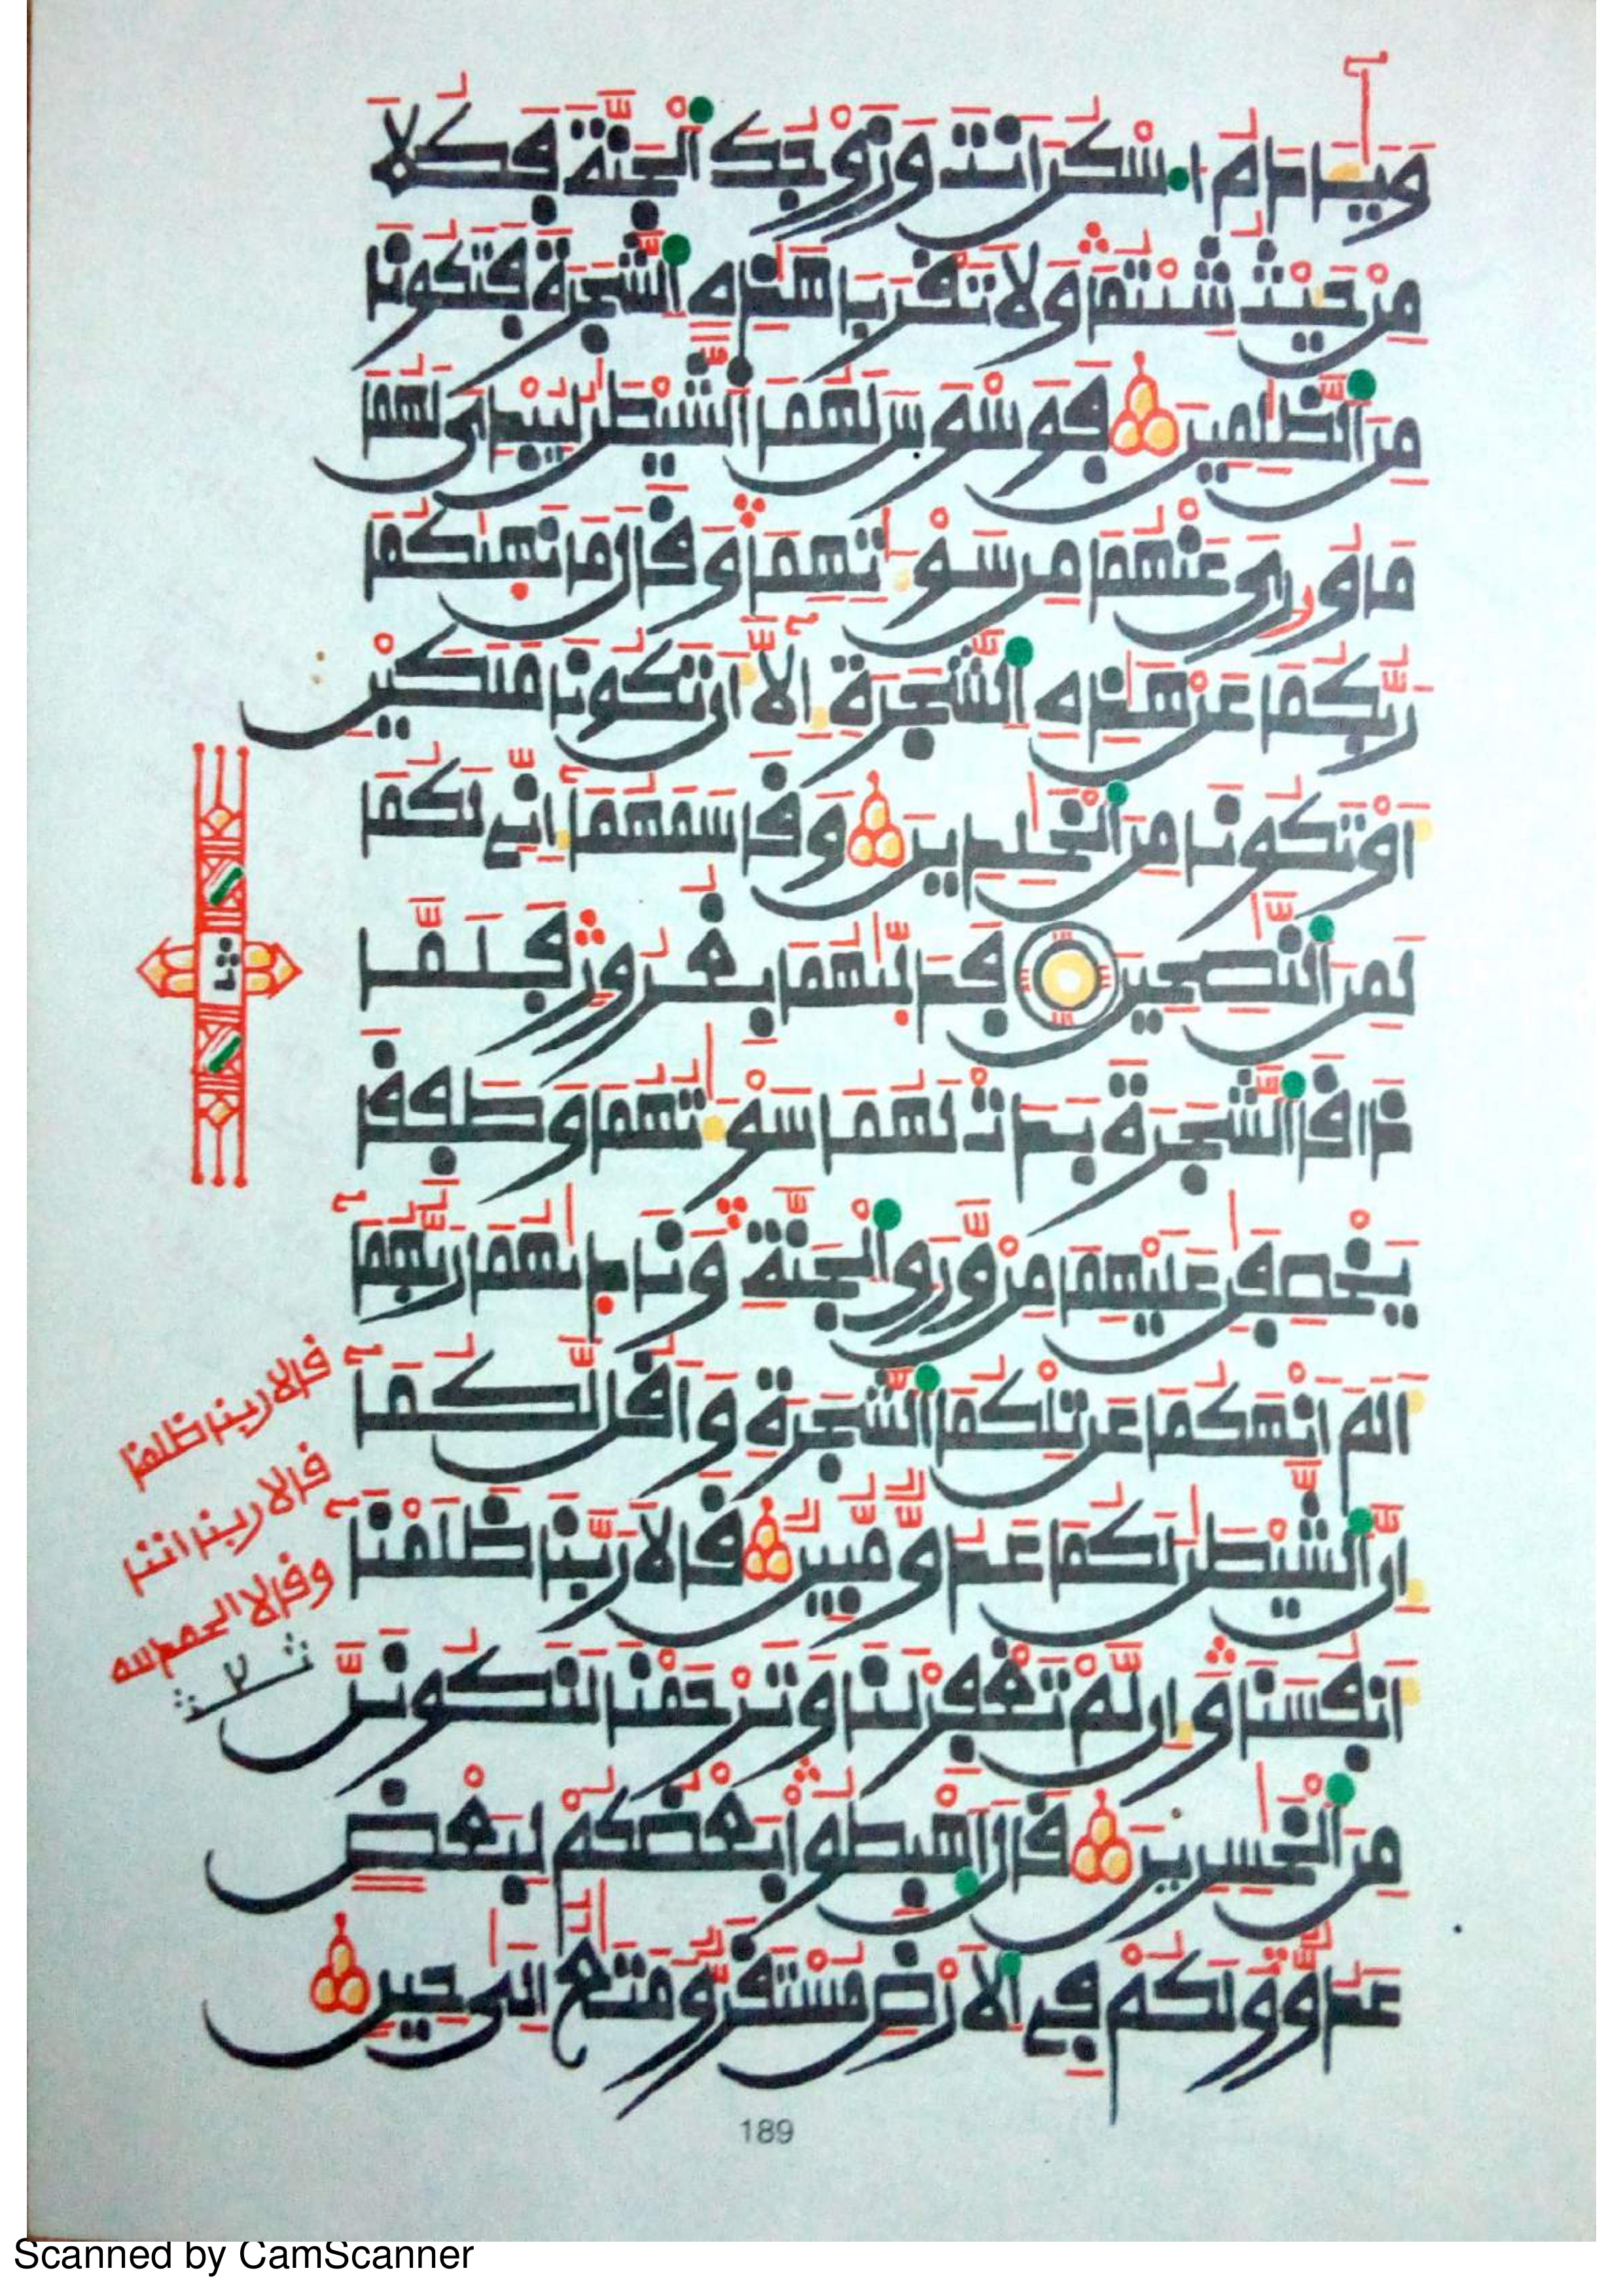 وَيَٰٓـَٔادَمُ ا۟سْكُنَ اَنتَ وَزَوْجُكَ اَ۬لْجَنَّةَ فَكُلَا
مِنْ حَيْثُ شِئْتُمَا وَلَا تَقْرَبَا هَٰذِهِ اِ۬لشَّجَرَةَ فَتَكُونَا
مِنَ اَ۬لظَّٰلِمِينَ فَوَسْوَسَ لَهُمَا اَ۬لشَّيْطَٰنُ لِيُبْدِيَ لَهُمَا
مَا وُۥرِيَ عَنْهُمَا مِن سَوْءَٰتِهِمَا وَقَالَ مَا نَهَيٰكُمَا
رَبُّكُمَا عَنْ هَٰذِهِ اِ۬لشَّجَرَةِ إِلَّآ أَن تَكُونَا مَلَكَيْنِ
أَوْ تَكُونَا مِنَ اَ۬لْخَٰلِدِينَ وَقَاسَمَهُمَآ إِنِّي لَكُمَا
لَمِنَ اَ۬لنَّٰصِحِينَ فَدَلَّيٰهُمَا بِغُرُورٍ فَلَمَّا
ذَاقَا اَ۬لشَّجَرَةَ بَدَتْ لَهُمَا سَوْءَٰتُهُمَا وَطَفِقَا
يَخْصِفَٰنِ عَلَيْهِمَا مِنْ وَّرَقِ اِ۬لْجَنَّةِ وَنَادَيٰهُمَا رَبُّهُمَآ
أَلَمَ اَنْهَكُمَا عَن تِلْكُمَا اَ۬لشَّجَرَةِ وَأَقُل لَّكُمَآ
إِنَّ اَ۬لشَّيْطَٰنَ لَكُمَا عَدُوٌّ مُّبِينٌ قَالَا رَبَّنَا ظَلَمْنَآ
أَنفُسَنَا وَإِن لَّمْ تَغْفِرْ لَنَا وَتَرْحَمْنَا لَنَكُونَنَّ
مِنَ اَ۬لْخَٰسِرِينَ قَالَ اَ۪هْبِطُوا بَعْضُكُمْ لِبَعْضٍ
عَدُوٌّ وَلَكُمْ فِي اِ۬لَارْضِ مُسْتَقَرٌّ وَمَتَٰعٌ اِلَىٰ حِينٍ
قالا ربنا ظلمنا
قالا ربنا اننا
وقالا الحمد لله
189
Scanned by CamScanner